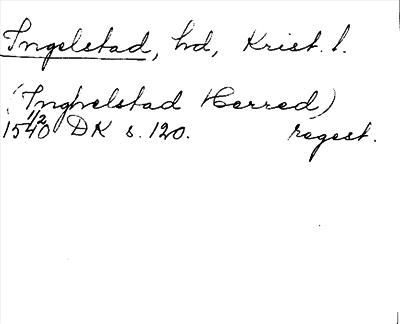 Ingelstad, hd, Krist. l.
(Inghelstad Herred)
1540 1/2 DK s. 120. regest.